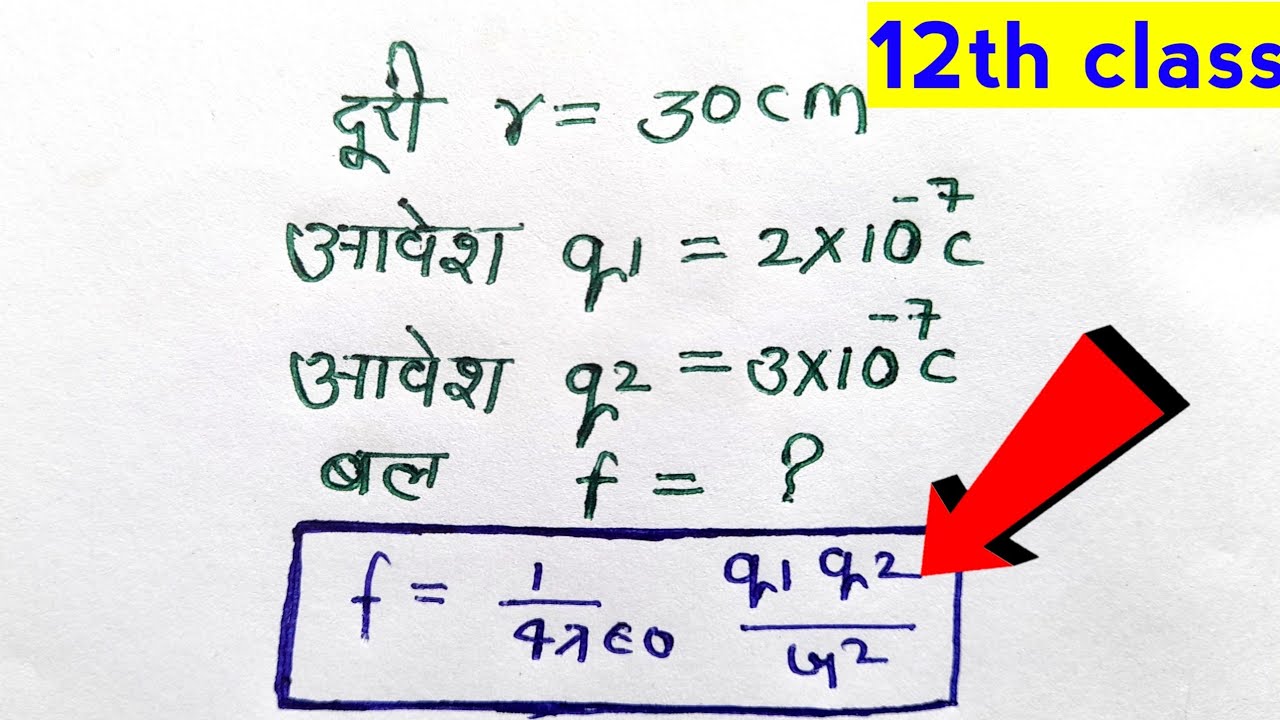 12th class
दूरी r = 30cm
आवेश q1 = 2×10⁻⁷c
आवेश q2 = 3×10⁻⁷c
बल f = ?
f = 1/4πε0 q1 q2/r²